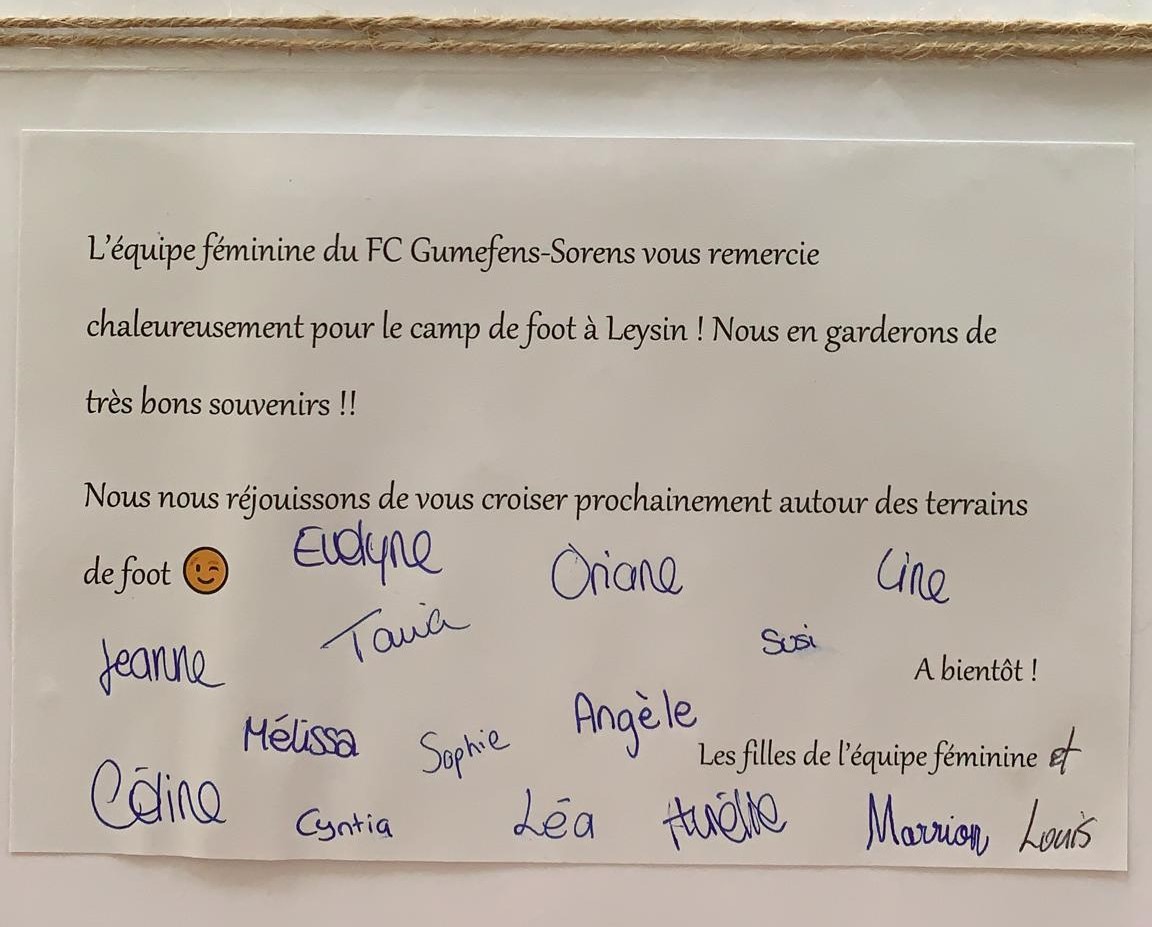 L'équipe féminine du FC Gumefens-Sorens vous remercie
chaleureusement pour le camp de foot à Leysin ! Nous en garderons de
très bons souvenirs !!
Nous nous réjouissons de vous croiser prochainement autour des terrains
de foot 😉
Evelyne Oriane Line
Jeanne Tania Susi
A bientôt !
Mélissa Sophie Angèle
Les filles de l'équipe féminine et
Céline Cyntia Léa Aurélie Marrion Louis